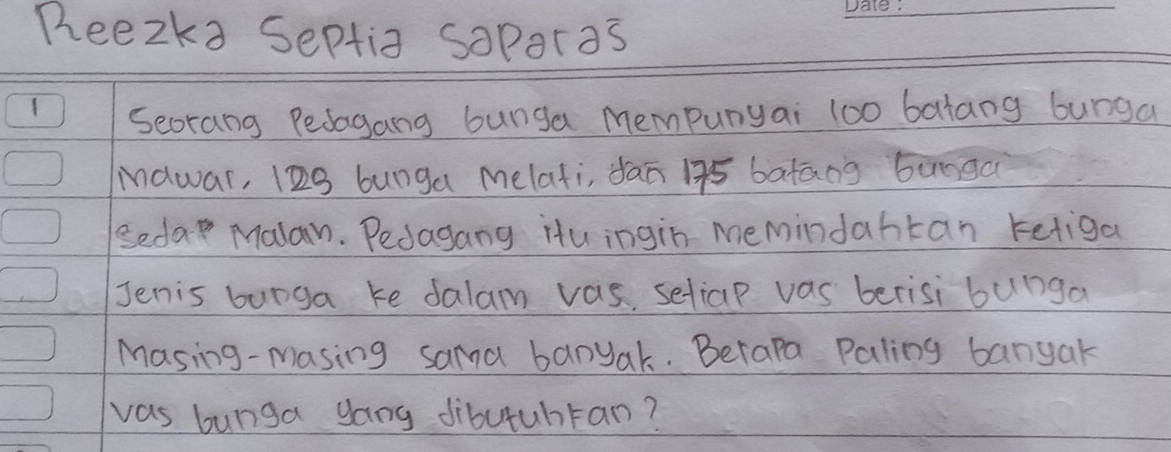 Date :
Reezka Septia Saparas
1 Seorang Pedagang bunga Mempunyai 100 batang bunga
Mawar, 125 bunga Melati, dan 175 batang bunga
Sedap Malam. Pedagang itu ingin memindahkan ketiga
Jenis bunga ke dalam vas. setiap vas berisi bunga
Masing-masing sama banyak. Berapa Paling banyak
vas bunga yang dibutuhkan?